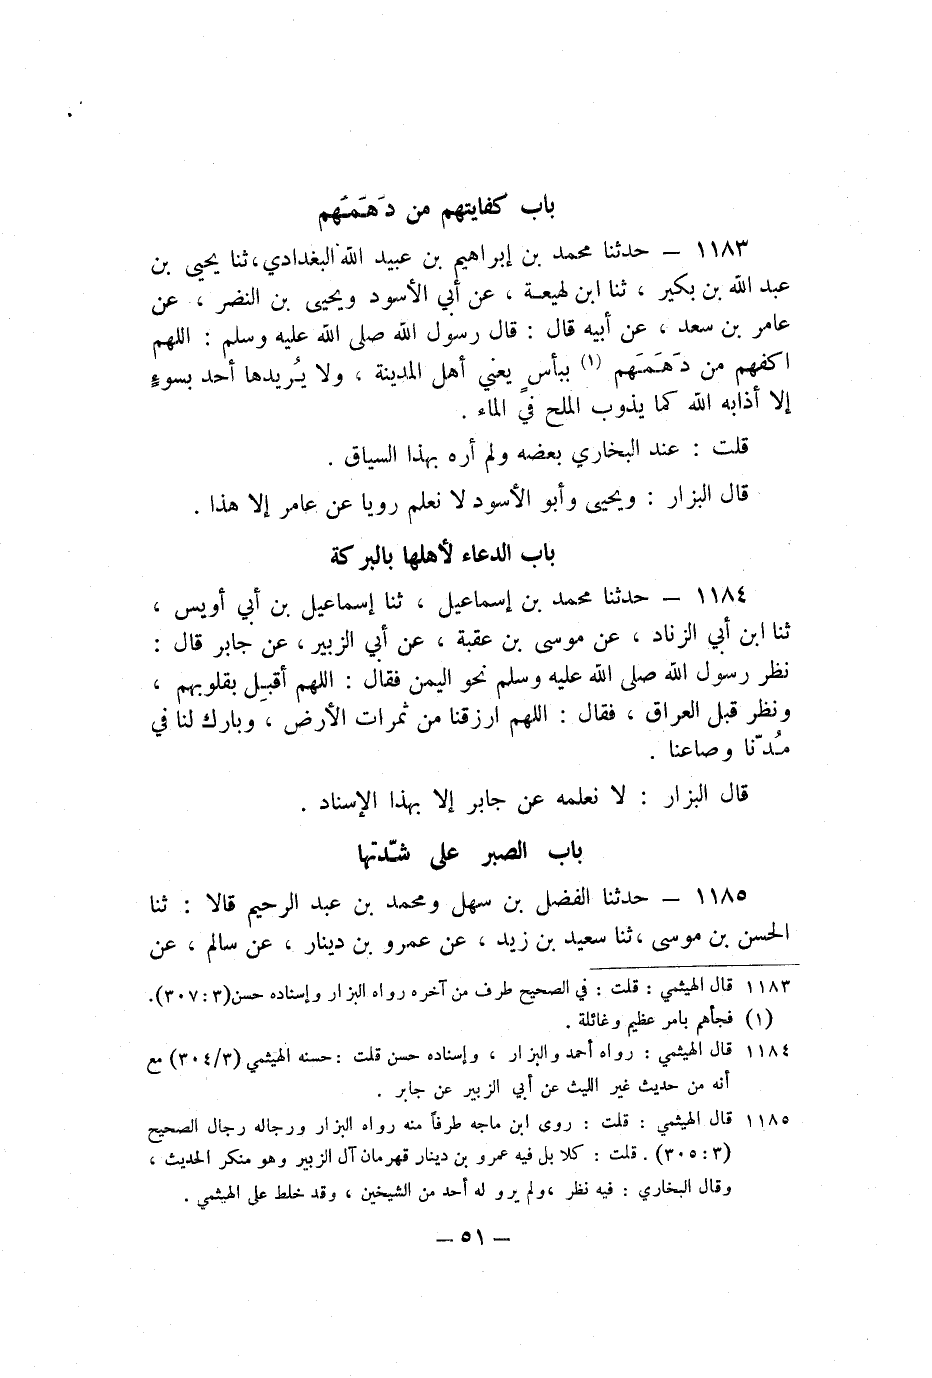 باب كفايتهم من دَهَمَهم
١١٨٣ – حدثنا محمد بن إبراهيم بن عبيد الله البغدادي، ثنا يحيى بن
عبد الله بن بكير ، ثنا ابن لهيعة ، عن أبي الأسود ويحيى بن النضر ، عن
عامر بن سعد ، عن أبيه قال : قال رسول الله صلى الله عليه وسلم : اللهم
اكفهم من دَهَمَهم (١) ببأسٍ يعني أهل المدينة ، ولا يُريدها أحد بسوءٍ
إلا أذابه الله كما يذوب الملح في الماء .
قلت : عند البخاري بعضه ولم أره بهذا السياق .
قال البزار : ويحيى وأبو الأسود لا نعلم رويا عن عامر إلا هذا .
باب الدعاء لأهلها بالبركة
١١٨٤ – حدثنا محمد بن إسماعيل ، ثنا إسماعيل بن أبي أويس ،
ثنا ابن أبي الزناد ، عن موسى بن عقبة ، عن أبي الزبير ، عن جابر قال :
نظر رسول الله صلى الله عليه وسلم نحو اليمن فقال : اللهم أقبِل بقلوبهم ،
ونظر قبل العراق ، فقال : اللهم ارزقنا من ثمرات الأرض ، وبارك لنا في
مُدّنا وصاعنا .
قال البزار : لا نعلمه عن جابر إلا بهذا الإسناد .
باب الصبر على شدّتها
١١٨٥ – حدثنا الفضل بن سهل ومحمد بن عبد الرحيم قالا : ثنا
الحسن بن موسى ، ثنا سعيد بن زيد ، عن عمرو بن دينار ، عن سالم ، عن
١١٨٣ قال الهيثمي : قلت : في الصحيح طرف من آخره رواه البزار وإسناده حسن (٣:٣٠٧).
(١) فجأهم بامر عظيم وغائلة .
١١٨٤ قال الهيثمي : رواه أحمد والبزار ، وإسناده حسن قلت : حسنه الهيثمي (٣٠٤/٣) مع
أنه من حديث غير الليث عن أبي الزبير عن جابر .
١١٨٥ قال الهيثمي : قلت : روى ابن ماجه طرفاً منه رواه البزار ورجاله رجال الصحيح
(٣:٣٠٥) . قلت : كلا بل فيه عمرو بن دينار قهرمان آل الزبير وهو منكر الحديث ،
وقال البخاري : فيه نظر ، ولم يرو له أحد من الشيخين ، وقد خلط على الهيثمي .
– ٥١ –